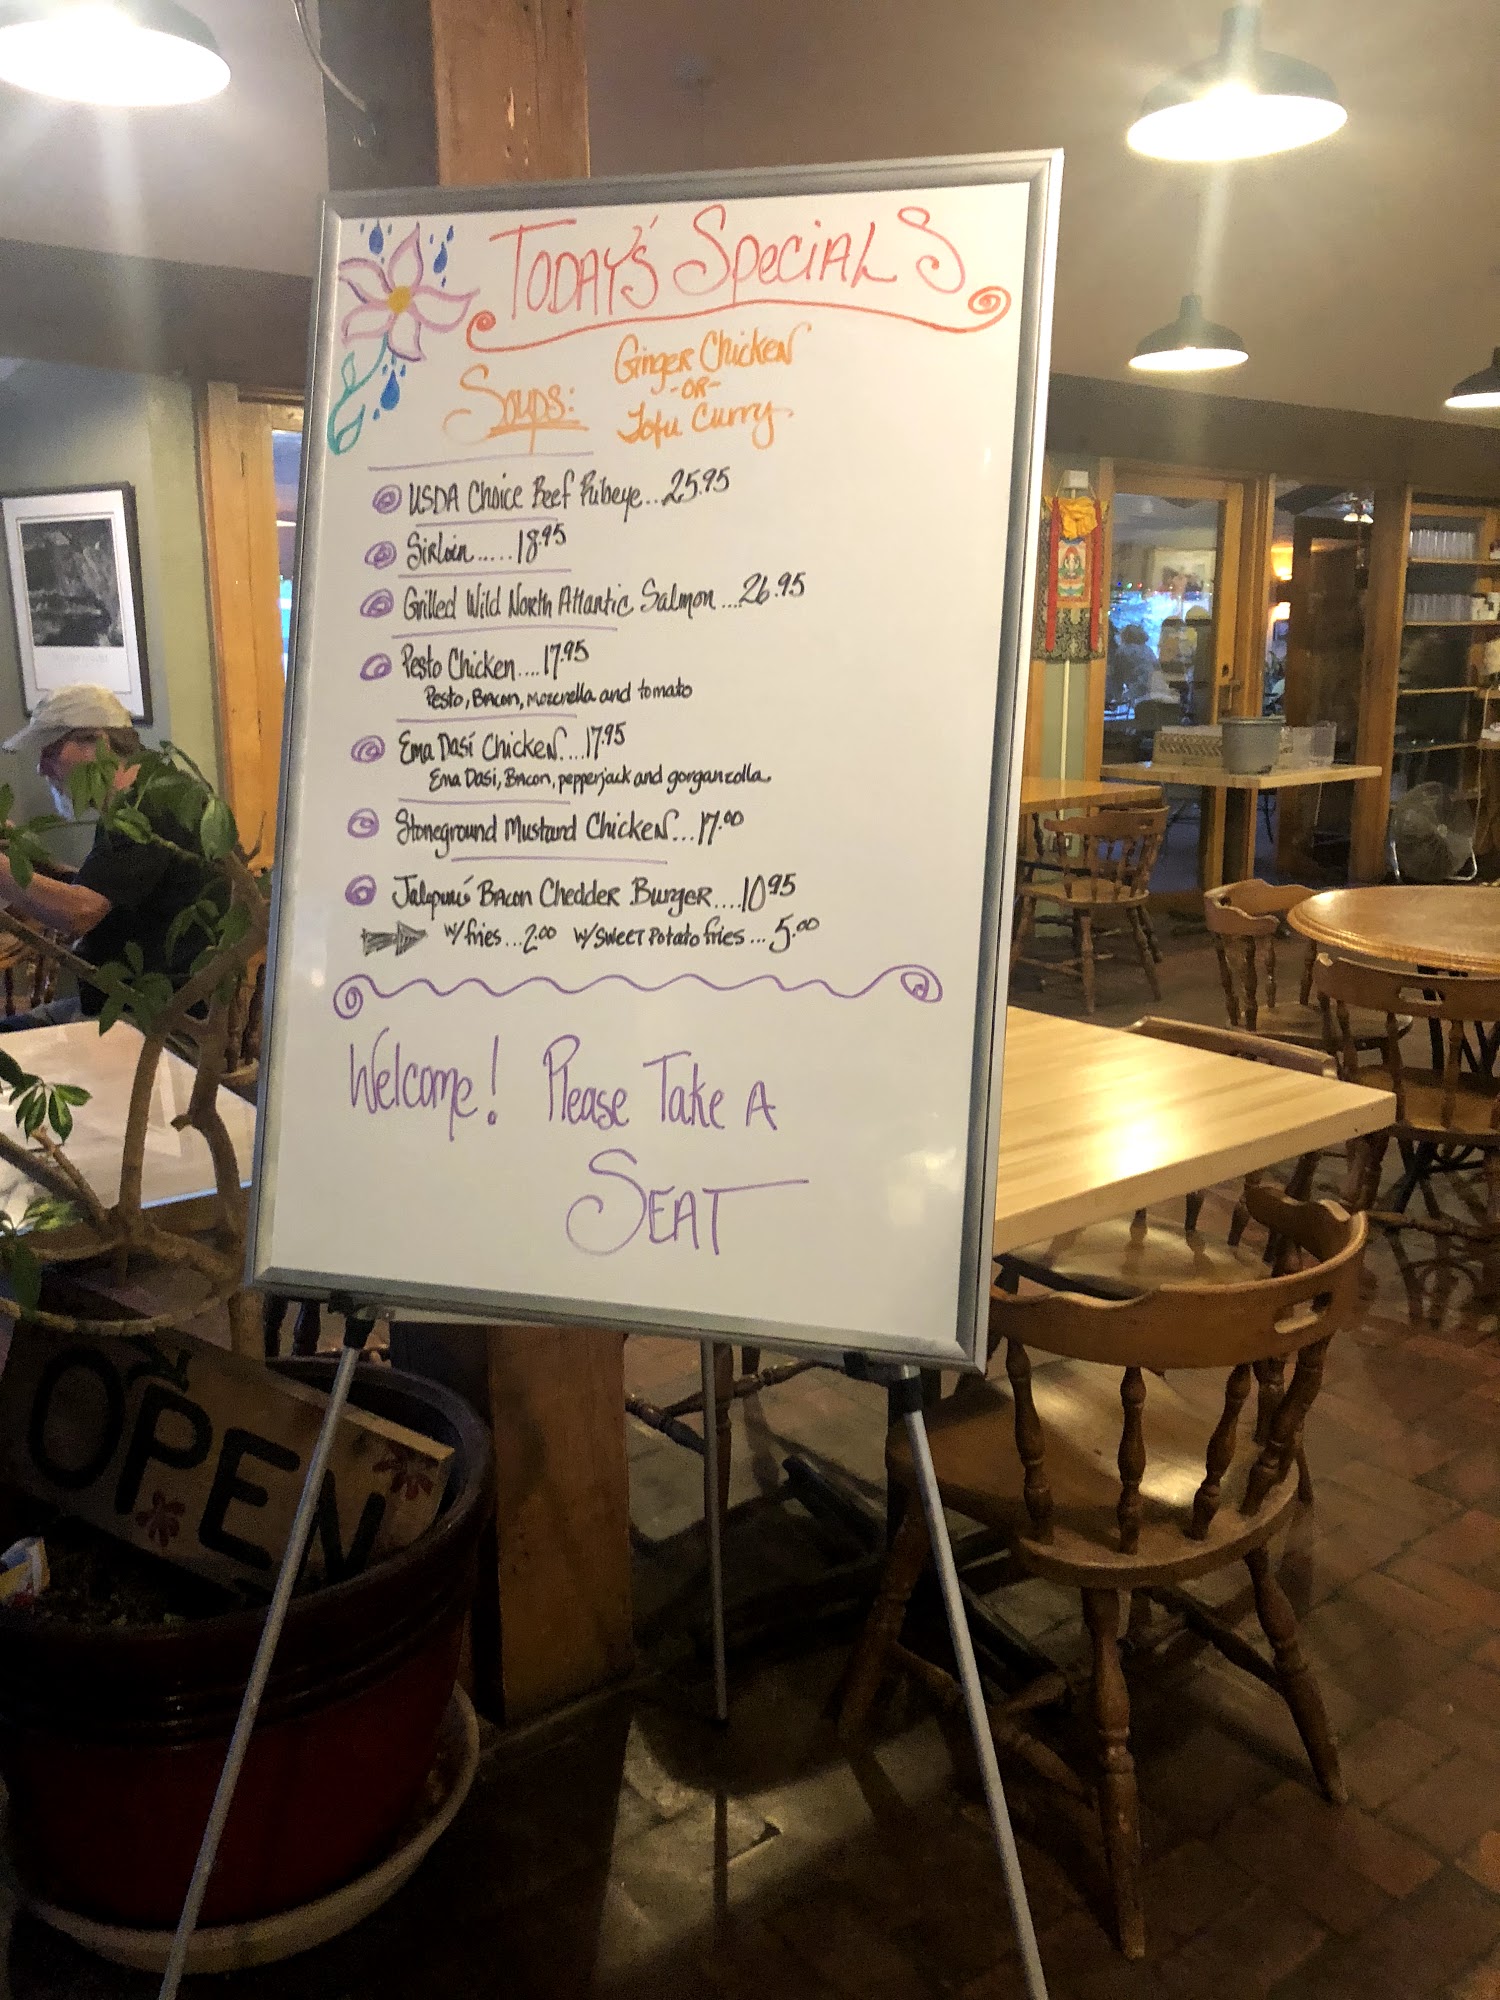 TODAY'S SPECIALS
Soups: Ginger Chicken
-OR-
Tofu Curry
USDA Choice Beef Ribeye...25.95
Sirloin......18.95
Grilled Wild North Atlantic Salmon...26.95
Pesto Chicken....17.95
Pesto, Bacon, mozerella and tomato
Ema Dasi Chicken....17.95
Ema Dasi, Bacon, pepperjack and gorganzolla
Stoneground Mustard Chicken...17.00
Bacon Chedder Burger....10.95
w/ fries...2.00 w/ SWEET POTATO fries...5.00
Welcome! Please Take A
SEAT
OPEN